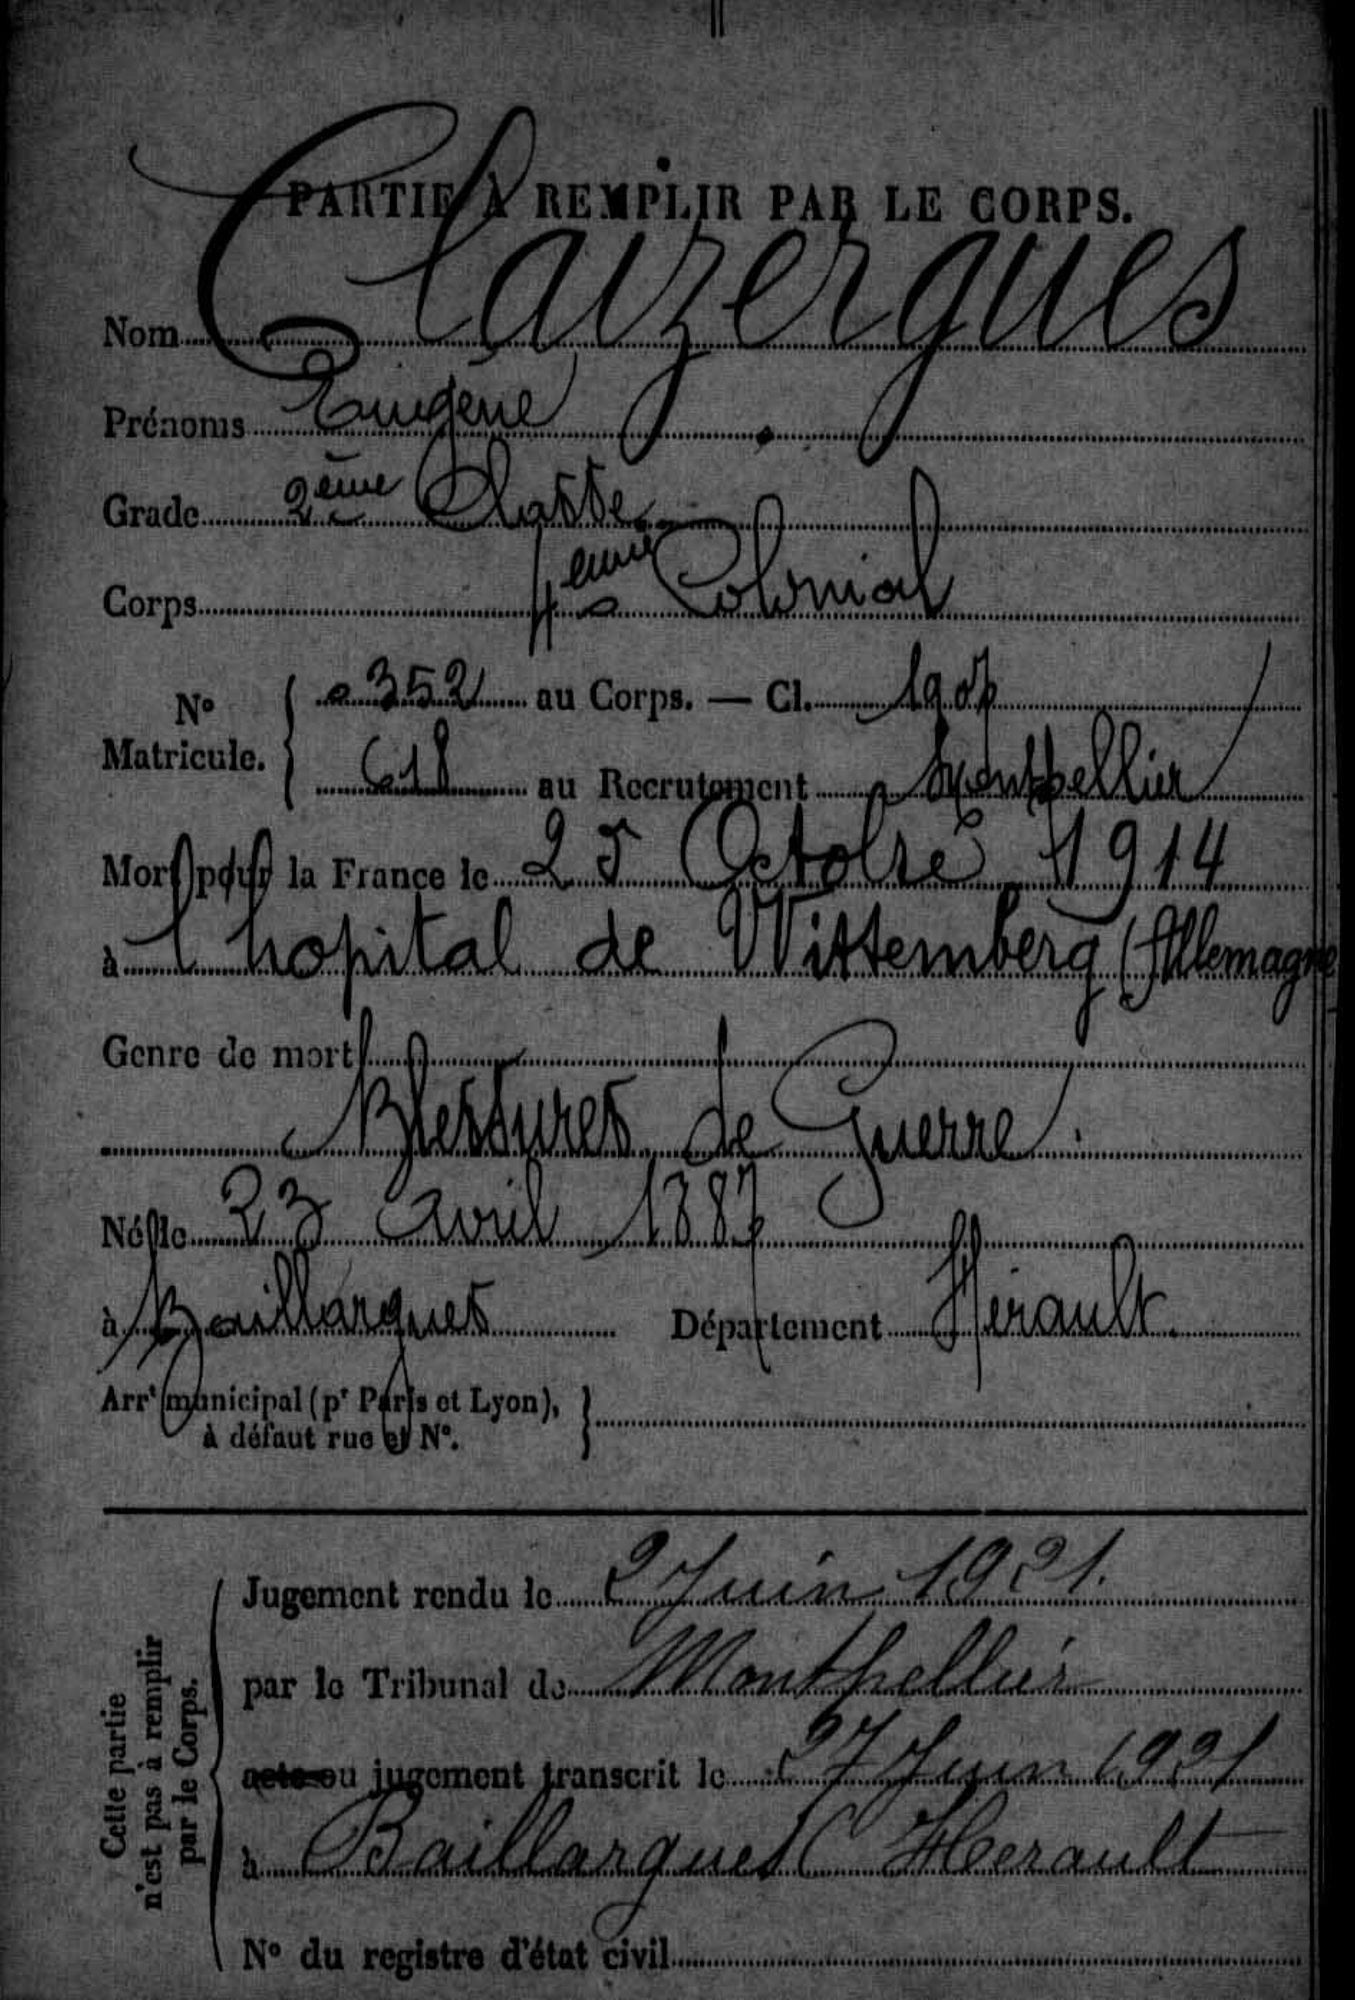 PARTIE À REMPLIR PAR LE CORPS.
Nom Clauzergues
Prénoms Eugène
Grade 2ème Classe
Corps 4ème Colonial
N° Matricule. 352 au Corps. — Cl. 1907
618 au Recrutement Montpellier
Mort pour la France le 25 Octobre 1914
à l'hopital de Wittemberg (Allemagne
Genre de mort
Blessures de Guerre
Né le 23 Avril 1887
à Baillargues Département Hérault
Arrt municipal (pr Paris et Lyon),
à défaut rue et N°.
Cette partie
n'est pas à remplir
par le Corps.
Jugement rendu le 2 Juin 1921.
par le Tribunal de Montpellier
acte ou jugement transcrit le 27 Juin 1921
à Baillargues (Herault
N° du registre d'état civil